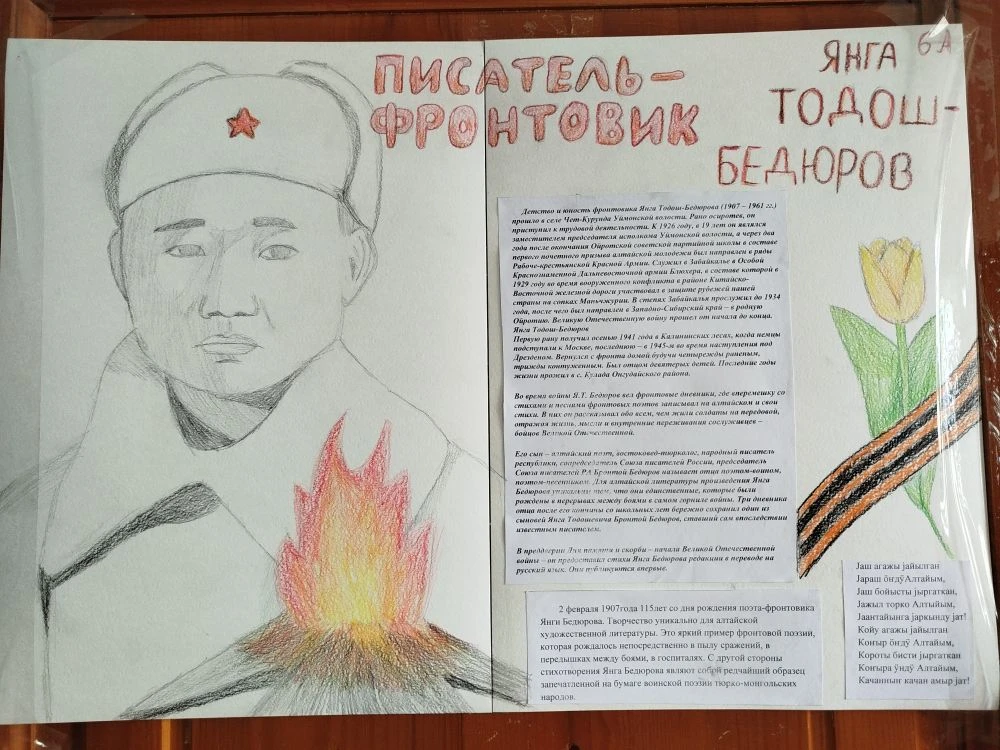 ПИСАТЕЛЬ-
ФРОНТОВИК
ЯНГА 6 А
ТОДОШ-
БЕДЮРОВ
Детство и юность фронтовика Янга Тодош-Бедюрова (1907 – 1961 гг.)
прошло в селе Чет-Курунда Уймонской волости. Рано осиротев, он
приступил к трудовой деятельности. К 1926 году, в 19 лет он являлся
заместителем председателя исполкома Уймонской волости, а через два
года после окончания Ойротской советской партийной школы в составе
первого почетного призыва алтайской молодежи был направлен в ряды
Рабоче-крестьянской Красной Армии. Служил в Забайкалье в Особой
Краснознаменной Дальневосточной армии Блюхера, в составе которой в
1929 году во время вооруженного конфликта в районе Китайско-
Восточной железной дороги участвовал в защите рубежей нашей
страны на сопках Маньчжурии. В степях Забайкалья прослужил до 1934
года, после чего был направлен в Западно-Сибирский край – в родную
Ойротию. Великую Отечественную войну прошел от начала до конца.
Янга Тодош-Бедюров
Первую рану получил осенью 1941 года в Калининских лесах, когда немцы
подступали к Москве, последнюю – в 1945-м во время наступления под
Дрезденом. Вернулся с фронта домой будучи четырежды раненым,
трижды контуженным. Был отцом девятерых детей. Последние годы
жизни прожил в с. Кулада Онгудайского района.
Во время войны Я.Т. Бедюров вел фронтовые дневники, где вперемешку со
стихами и песнями фронтовых поэтов записывал на алтайском и свои
стихи. В них он рассказывал обо всем, чем жили солдаты на передовой,
отражая жизнь, мысли и внутренние переживания сослуживцев –
бойцов Великой Отечественной.
Его сын – алтайский поэт, востоковед-тюрколог, народный писатель
республики, сопредседатель Союза писателей России, председатель
Союза писателей РА Бронтой Бедюров называет отца поэтом-воином,
поэтом-песенником. Для алтайской литературы произведения Янга
Бедюрова уникальны тем, что они единственные, которые были
рождены в перерывах между боями в самом горниле войны. Три дневника
отца после его кончины со школьных лет бережно сохранил один из
сыновей Янга Тодошевича Бронтой Бедюров, ставший сам впоследствии
известным писателем.
В преддверии Дня памяти и скорби – начала Великой Отечественной
войны – он предоставил стихи Янга Бедюрова редакции в переводе на
русский язык. Они публикуются впервые.
2 февраля 1907года 115лет со дня рождения поэта-фронтовика
Янги Бедюрова. Творчество уникально для алтайской
художественной литературы. Это яркий пример фронтовой поэзии,
которая рождалось непосредственно в пылу сражений, в
передышках между боями, в госпиталях. С другой стороны
стихотворения Янга Бедюрова являют собой редчайший образец
запечатленной на бумаге воинской поэзии тюрко-монгольских
народов.
Јаш агажы јайылган
Јараш ӧҥдӱ Алтайым,
Јаш бойысты јыргаткан,
Јажыл торко Алтыйым,
Јаантайынга јаркынду јат!
Койу агажы јайылган
Коҥыр ӧҥдӱ Алтайым,
Короты бисти јыргаткан
Коҥыра ӱндӱ Алтайым,
Качанныҥ качан амыр јат!